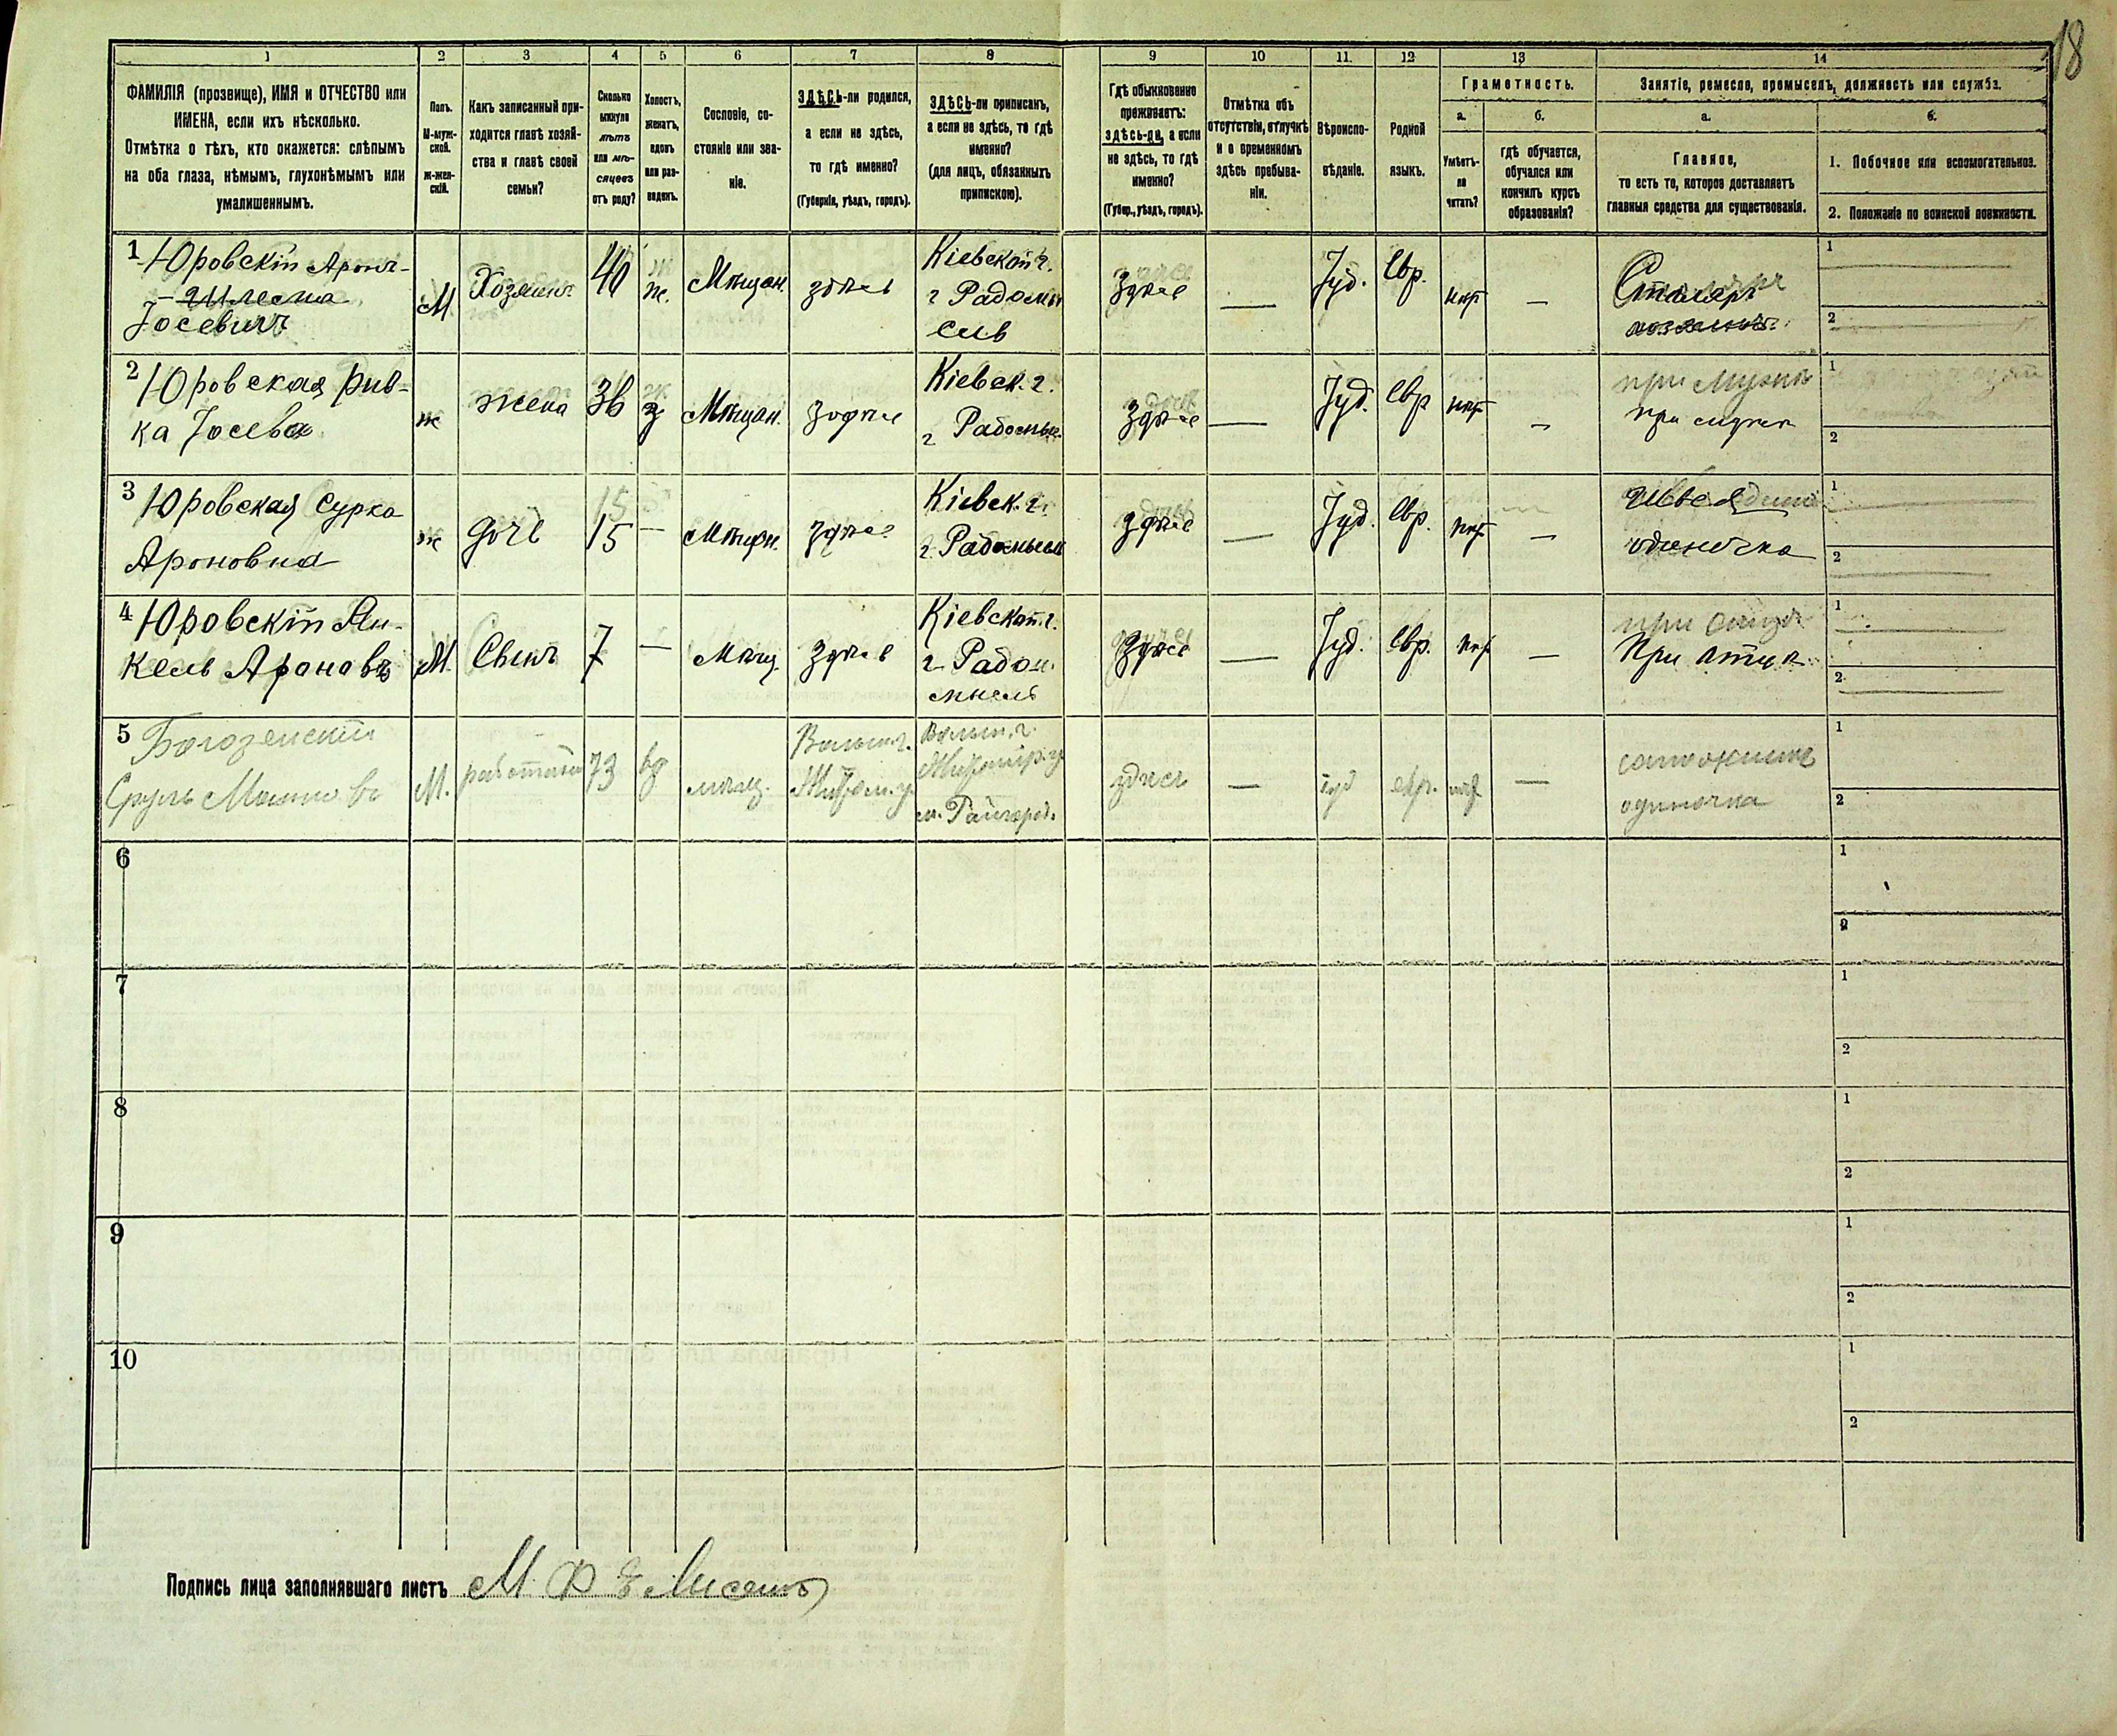 18
1 2 3 4 5 6 7 8 9 10 11. 12 13 14
ФАМИЛІЯ (прозвище), ИМЯ и ОТЧЕСТВО или
ИМЕНА, если ихъ нѣсколько.
Отмѣтка о тѣхъ, кто окажется: слѣпымъ
на оба глаза, нѣмымъ, глухонѣмымъ или
умалишеннымъ.
Полъ.
М-муж-
ской.
ж-жен-
скій.
Какъ записанный при-
ходится главѣ хозяй-
ства и главѣ своей
семьи?
Сколько
минуло
лѣтъ
или мѣ-
сяцевъ
отъ роду?
Холостъ,
женатъ,
вдовъ
или раз-
веденъ.
Сословіе, со-
стояніе или зва-
ніе.
ЗДѢСЬ-ли родился,
а если не здѣсь,
то гдѣ именно?
(Губернія, уѣздъ, городъ).
ЗДѢСЬ-ли приписанъ,
а если не здѣсь, то гдѣ
именно?
(для лицъ, обязанныхъ
припискою).
Гдѣ обыкновенно
проживаетъ:
здѣсь-ли, а если
не здѣсь, то гдѣ
именно?
(Губер., уѣздъ, городъ).
Отмѣтка объ
отсутствіи, отлучкѣ
и о временномъ
здѣсь пребыва-
ніи.
Вѣроиспо-
вѣданіе.
Родной
языкъ.
Грамотность.
а.
Умѣетъ-
ли
читать?
б.
гдѣ обучается,
обучался или
кончилъ курсъ
образованія?
Занятіе, ремесло, промыселъ, должность или служба.
а.
Главное,
то есть то, которое доставляетъ
главныя средства для существованія.
б.
1. Побочное или вспомогательное.
2. Положеніе по воинской повинности.
1 Юровскій Аронъ-
Іосевичъ
М Хозяинъ 40 ж. Мѣщан. здѣсь
Кіевской г.
г Радомы
сль
Здѣсь — Іуд. Евр. нѣт —
Столяръ
1
2
2 Юровская Рив-
ка Іосева
ж жена 36 з Мѣщан. здѣсь
Кіевск. г.
г Радомы.
здѣсь — Іуд. Евр нѣт —
при мужѣ
при мужѣ
1
2
3 Юровская Сурка
Ароновна
ж дочь 15 15 — Мѣщан. здѣсь
Кіевск. г.
г. Радомысл
здѣсь — Іуд. Евр. нѣт —
одиночка
1
2
4 Юровскій Ян-
кель Ароновъ
М. Сынъ 7 — Мѣщ. здѣсь
Кіевской г.
г Радо
мысль
здѣсь — Іуд. Евр. нѣт —
при отцѣ
При отцѣ
1
2
5
Сруль
М. 73 вд мѣщ.
Волын. г.
Житом. у.
Волын. г.
Житомір. у
м. Райгород.
здѣсь — іуд евр. нѣт —
одиночка
1
2
6 1
2
7 1
2
8 1
2
9 1
2
10 1
2
Подпись лица заполнявшаго листъ